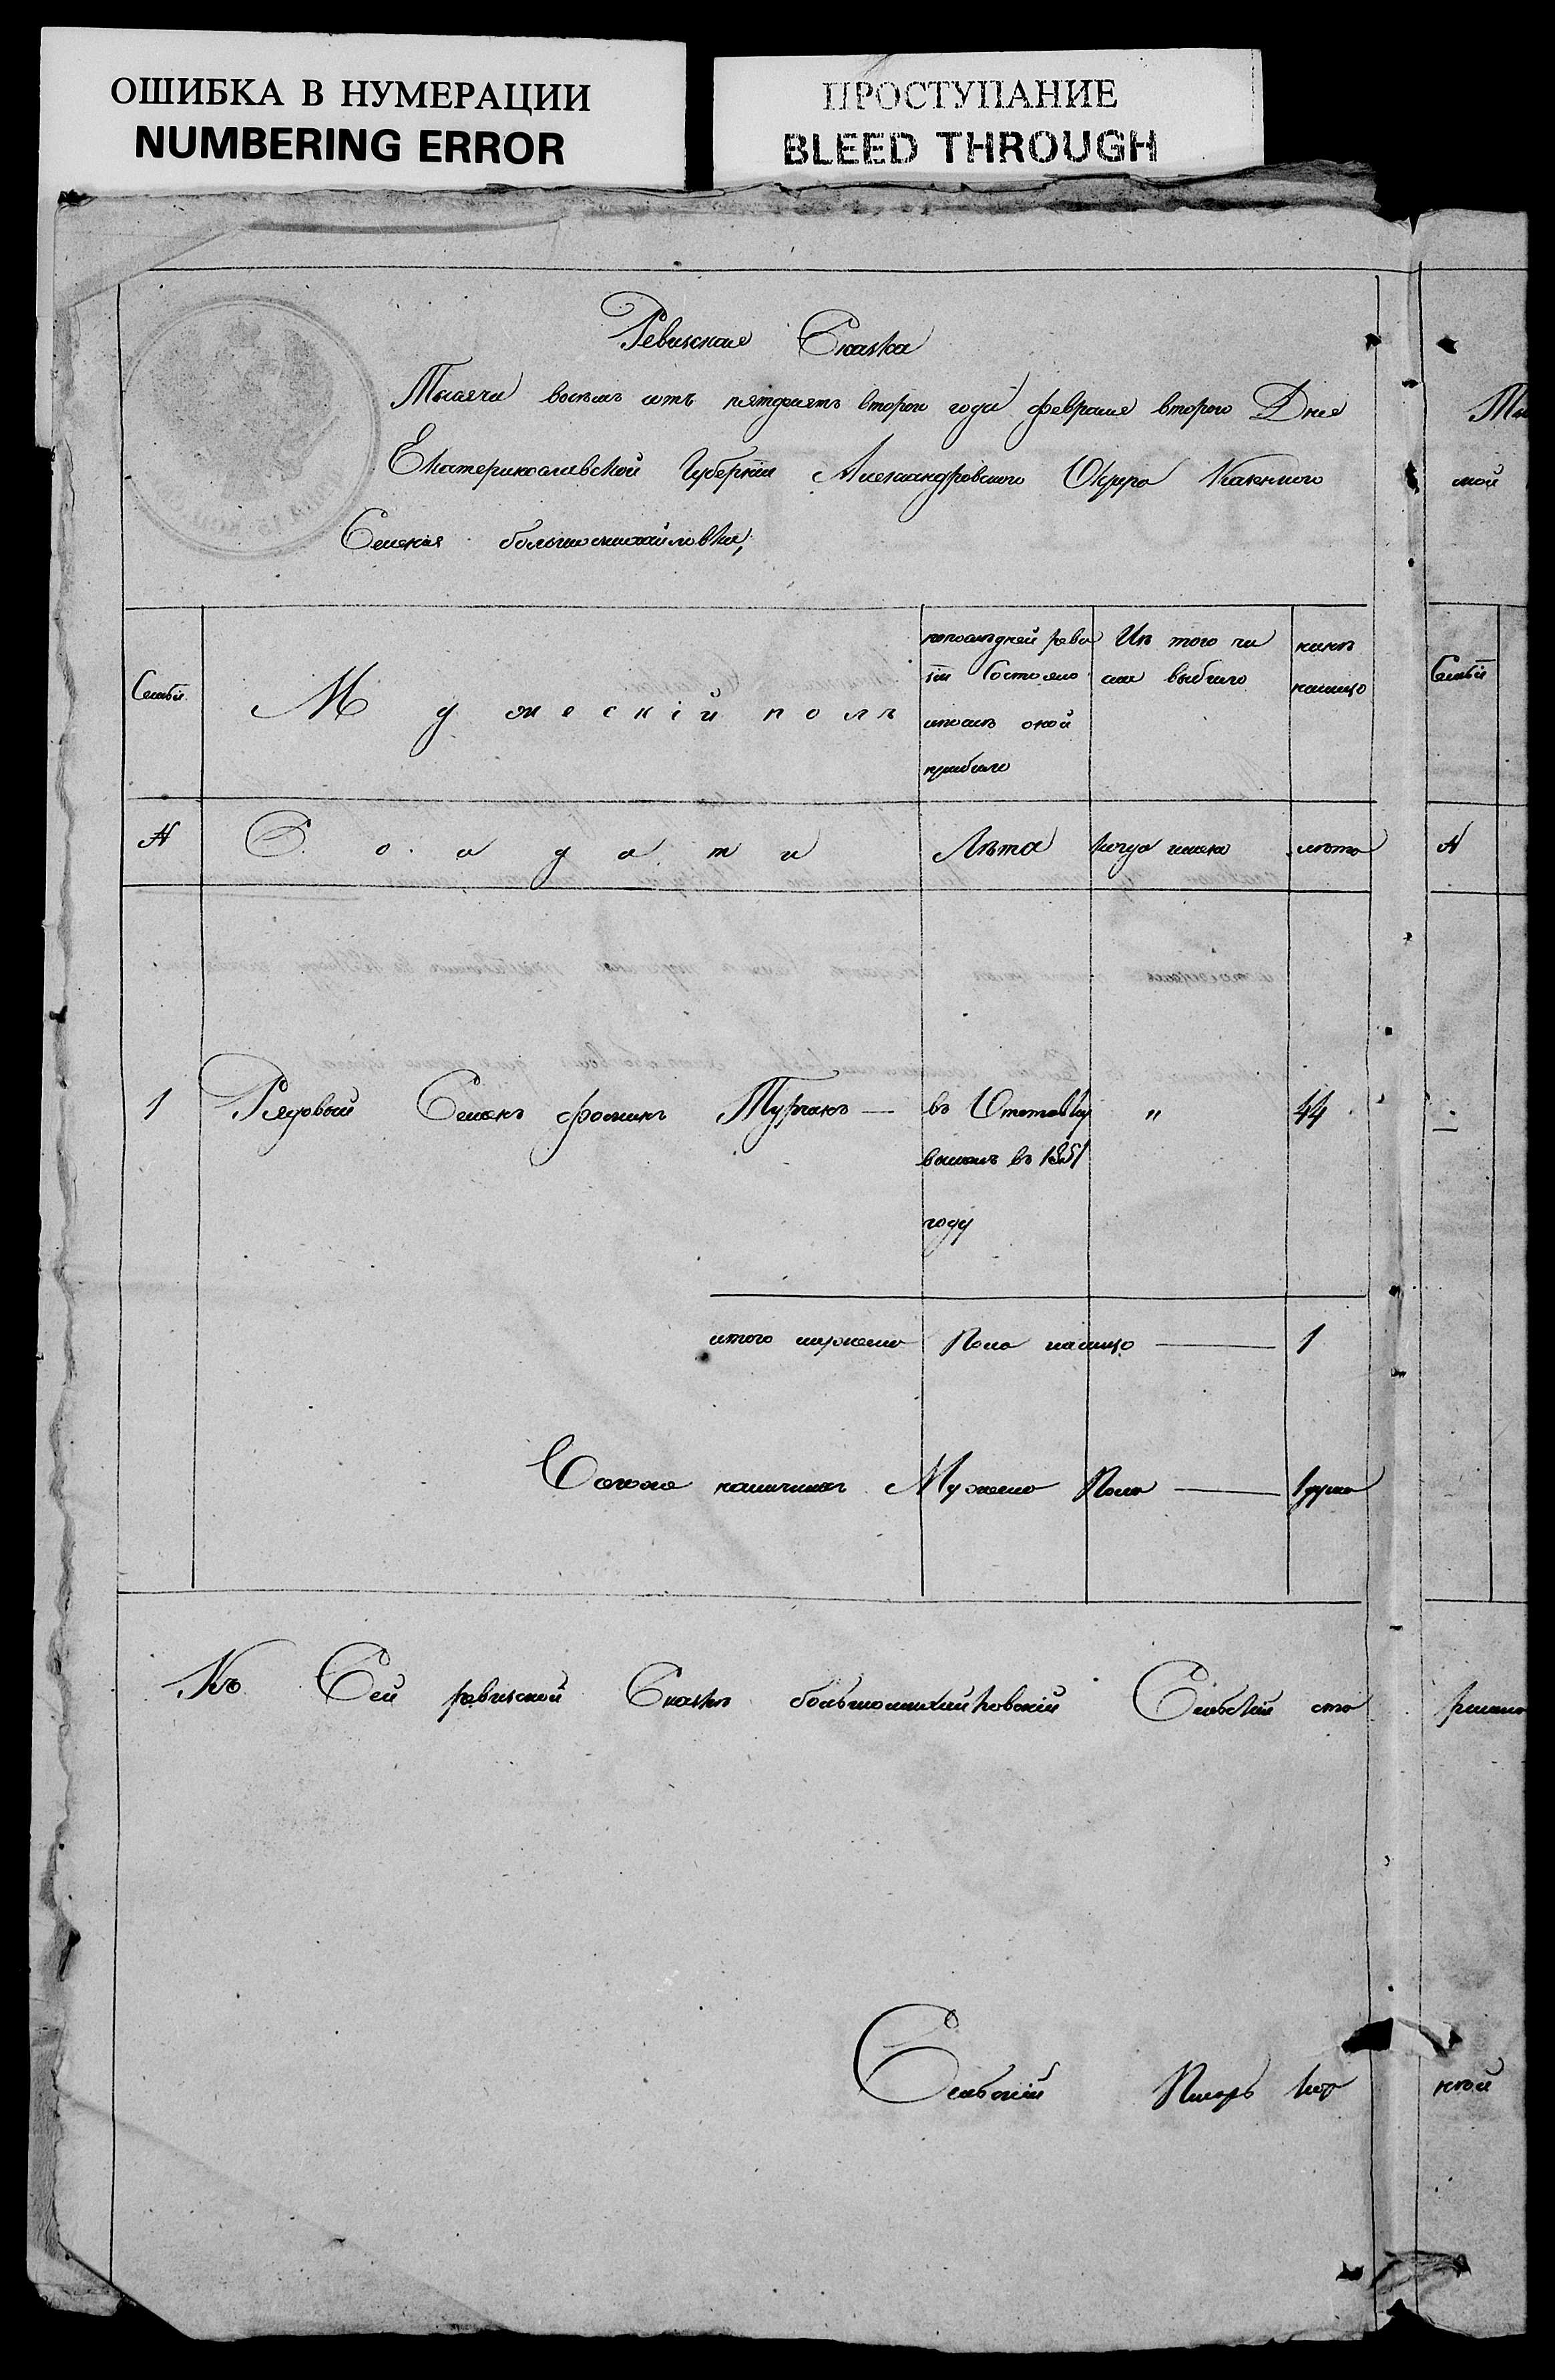 ОШИБКА В НУМЕРАЦИИ
NUMBERING ERROR
ПРОСТУПАНИЕ
BLEED THROUGH
Ревизская Сказка
Тысяча восемь сотъ пятдесятъ второго года февраля второго Дня
Екатеринославской Губерніи Александровского Округа Казенного
Селенія большомихайловки,
Семьи
Мужескій полъ
попоследней реви
зіи Состояло
илипослѣ оной
прибыло
Изъ того чи
сла выбыло
нынѣ
налицо
Семьи
№
Солдати
Лѣта
когда имена
лѣта
№
1
Рядовый Семенъ фоминъ Турчакъ —
въ Отставку
вышелъ въ 1851
году
"
44
итого мужеска Пола налицо — 1
Мужеска Пола — 1 душа
Къ Сей ревизской Сказки большомихайловскій Сельскій ста
Сельскій Писарь